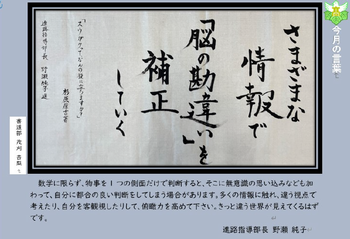 今月の言葉
さまざまな
情報で
「脳の勘違い」を
補正
していく
杉原厚吉著
進路指導部長 野瀬純子選
書道部
数学に限らず、物事を1つの側面だけで判断すると、そこに無意識の思い込みなども加
わって、自分に都合の良い判断をしてしまう場合があります。多くの情報に触れ、違う視点で
考えたり、自分を客観視したりして、俯瞰力を高めて下さい。きっと違う世界が見えてくるはず
です。
進路指導部長 野瀬 純子